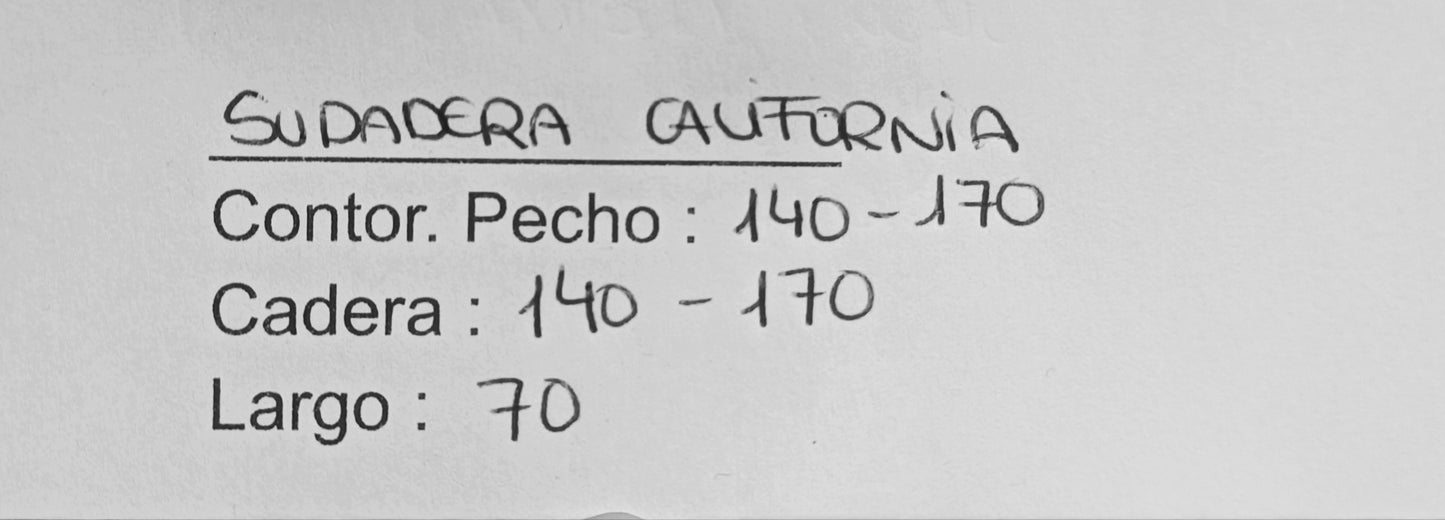 SUDADERA CALIFORNIA
Contor. Pecho : 140 - 170
Cadera : 140 - 170
Largo : 70